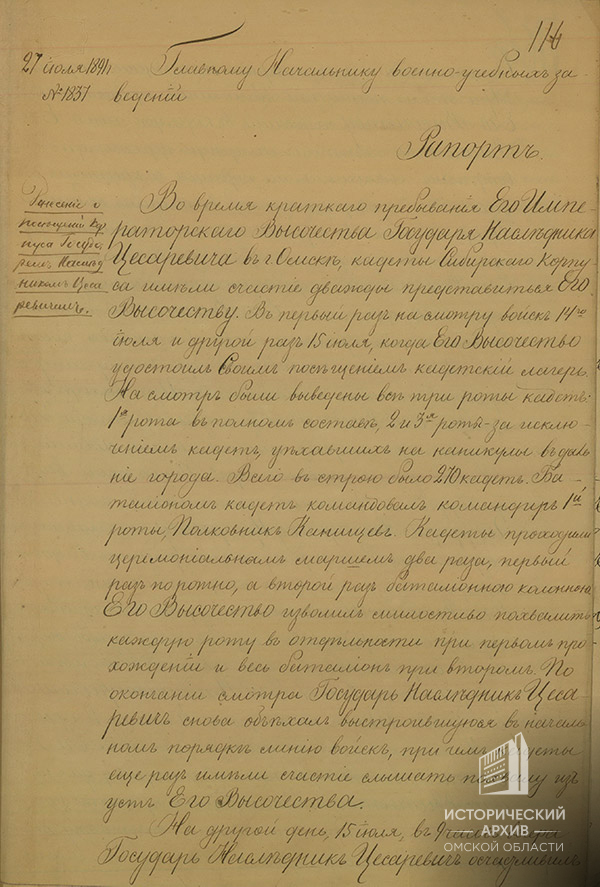 116
27 іюля 1891 Главному Начальнику военно-учебныхъ за-
№ 1837 веденій
Рапортъ.
Донесеніе о
посѣщеніи Кор
пуса Госуда
ремъ Наслѣд
никомъ Цеса
ревичемъ.
Во время краткаго пребыванія Его Импе-
раторскаго Высочества Государя Наслѣдника
Цесаревича въ г. Омскѣ, кадеты Сибирскаго Корпу-
са имѣли счастіе дважды представиться Его
Высочеству. Въ первый разъ на смотру войскъ 14го
іюля и другой разъ 15 іюля, когда Его Высочество
удостоилъ Своимъ посѣщеніемъ кадетскій лагерь.
На смотръ были выведены всѣ три роты кадетъ:
1я рота въ полномъ составѣ, 2 и 3я роты - за исклю-
ченіемъ кадетъ, уѣхавшихъ на каникулы въ
ніе города. Всего въ строю было 270 кадетъ. Ба-
таліономъ кадетъ командовалъ командиръ 1й
роты, Полковникъ Канищевъ. Кадеты проходили
церемоніальнымъ маршемъ два раза, первый
разъ поротно, а второй разъ баталіонною колонною.
Его Высочество изволилъ милостиво похвалить
каждую роту въ отдѣльности при первомъ про-
хожденіи и весь баталіонъ при второмъ. По
окончаніи смотра Государь Наслѣдникъ Цеса-
ревичъ снова объѣхалъ выстроившуюся въ началь-
номъ порядкѣ линію войскъ, при чемъ кадеты
еще разъ имѣли счастіе слышать похвалу изъ
устъ Его Высочества.
На другой день, 15 іюля, въ 9
Государь Наслѣдникъ Цесаревичъ осчастливилъ
ИСТОРИЧЕСКИЙ
АРХИВ
ОМСКОЙ ОБЛАСТИ